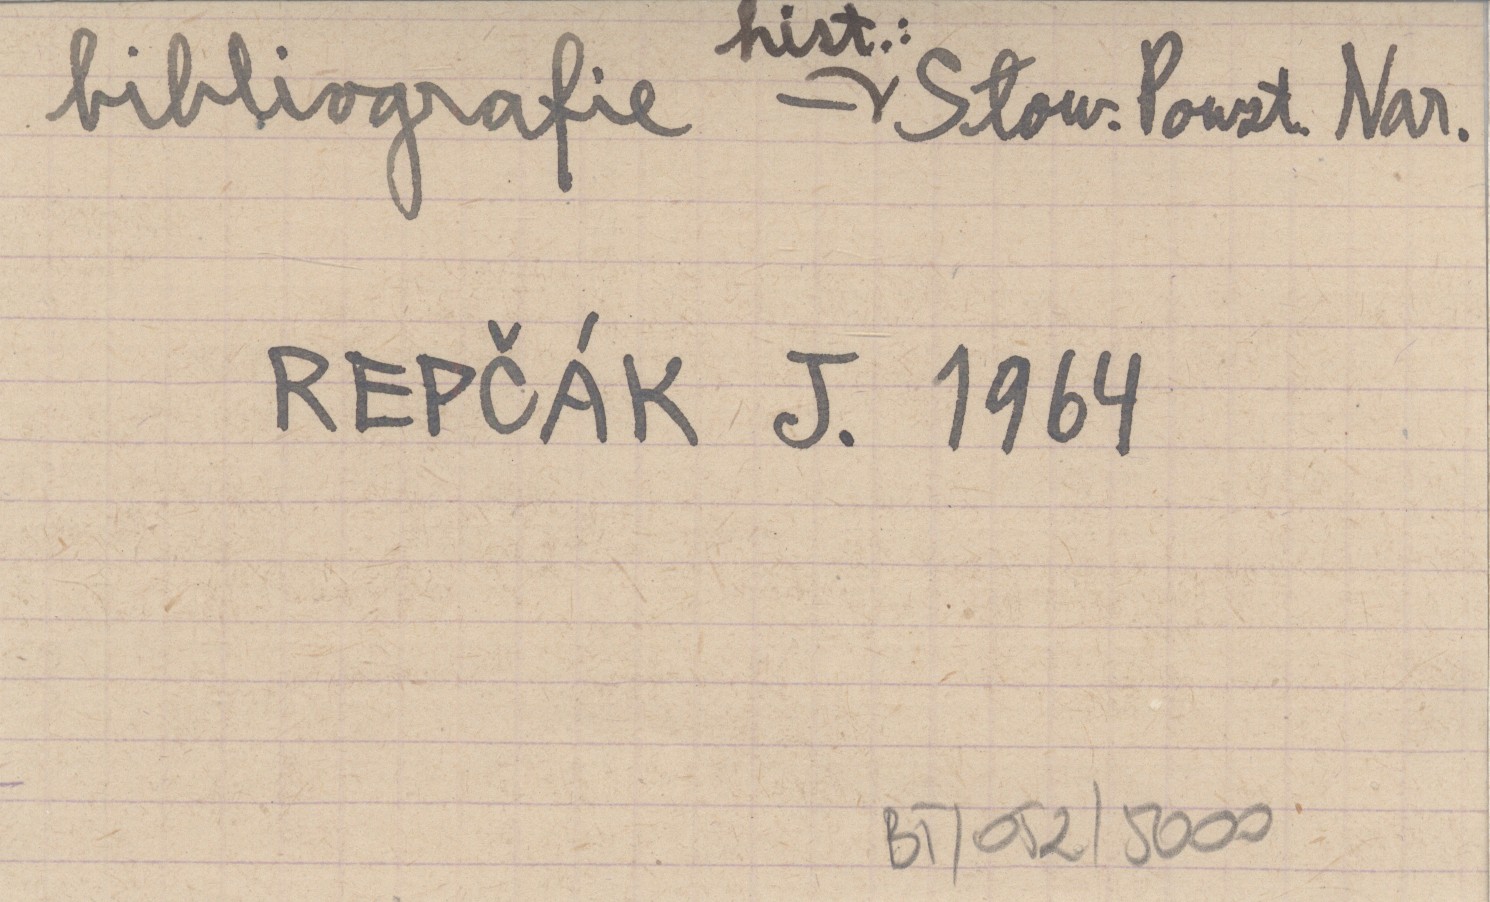 bibliografie hist.: → Słow. Powst. Nar.
REPČÁK J. 1964
BT/052/5000